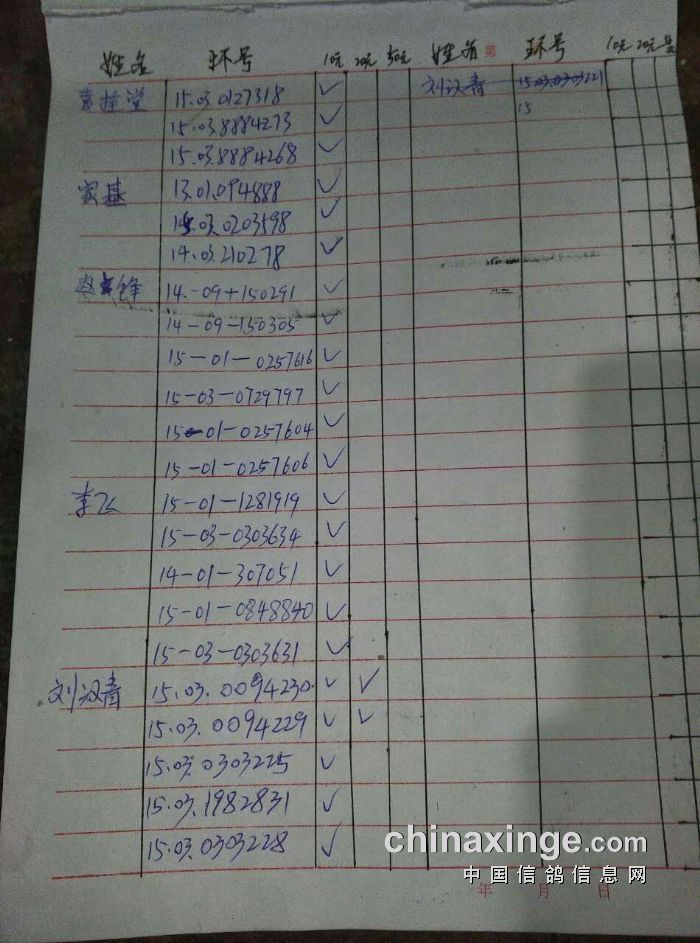 姓名 环号 10元 20元 50元 姓名 第 环号 10元 20元
15.03.0127318 ✓ 刘汉青 15.03.0303221
15.03.8884273 ✓ 15
15.03.8884268 ✓
13.01.094888 ✓
14.03.0203598 ✓
14.03.210278 ✓
锋 14.-09+150291 ✓
14-09-150305 ✓
15-01-0257616 ✓
15-03-0729797 ✓
15-01-0257604 ✓
15-01-0257606 ✓
李飞 15-01-1281919 ✓
15-03-0303634 ✓
14-01-307051 ✓
15-01-0848840 ✓
15-03-0303631 ✓
刘汉青 15.03.0094230 ✓ ✓
15.03.0094229 ✓ ✓
15.03.0303225 ✓
15.03.1982831 ✓
15.03.0303228 ✓
chinaxinge.com
中国信鸽信息网
年 月 日